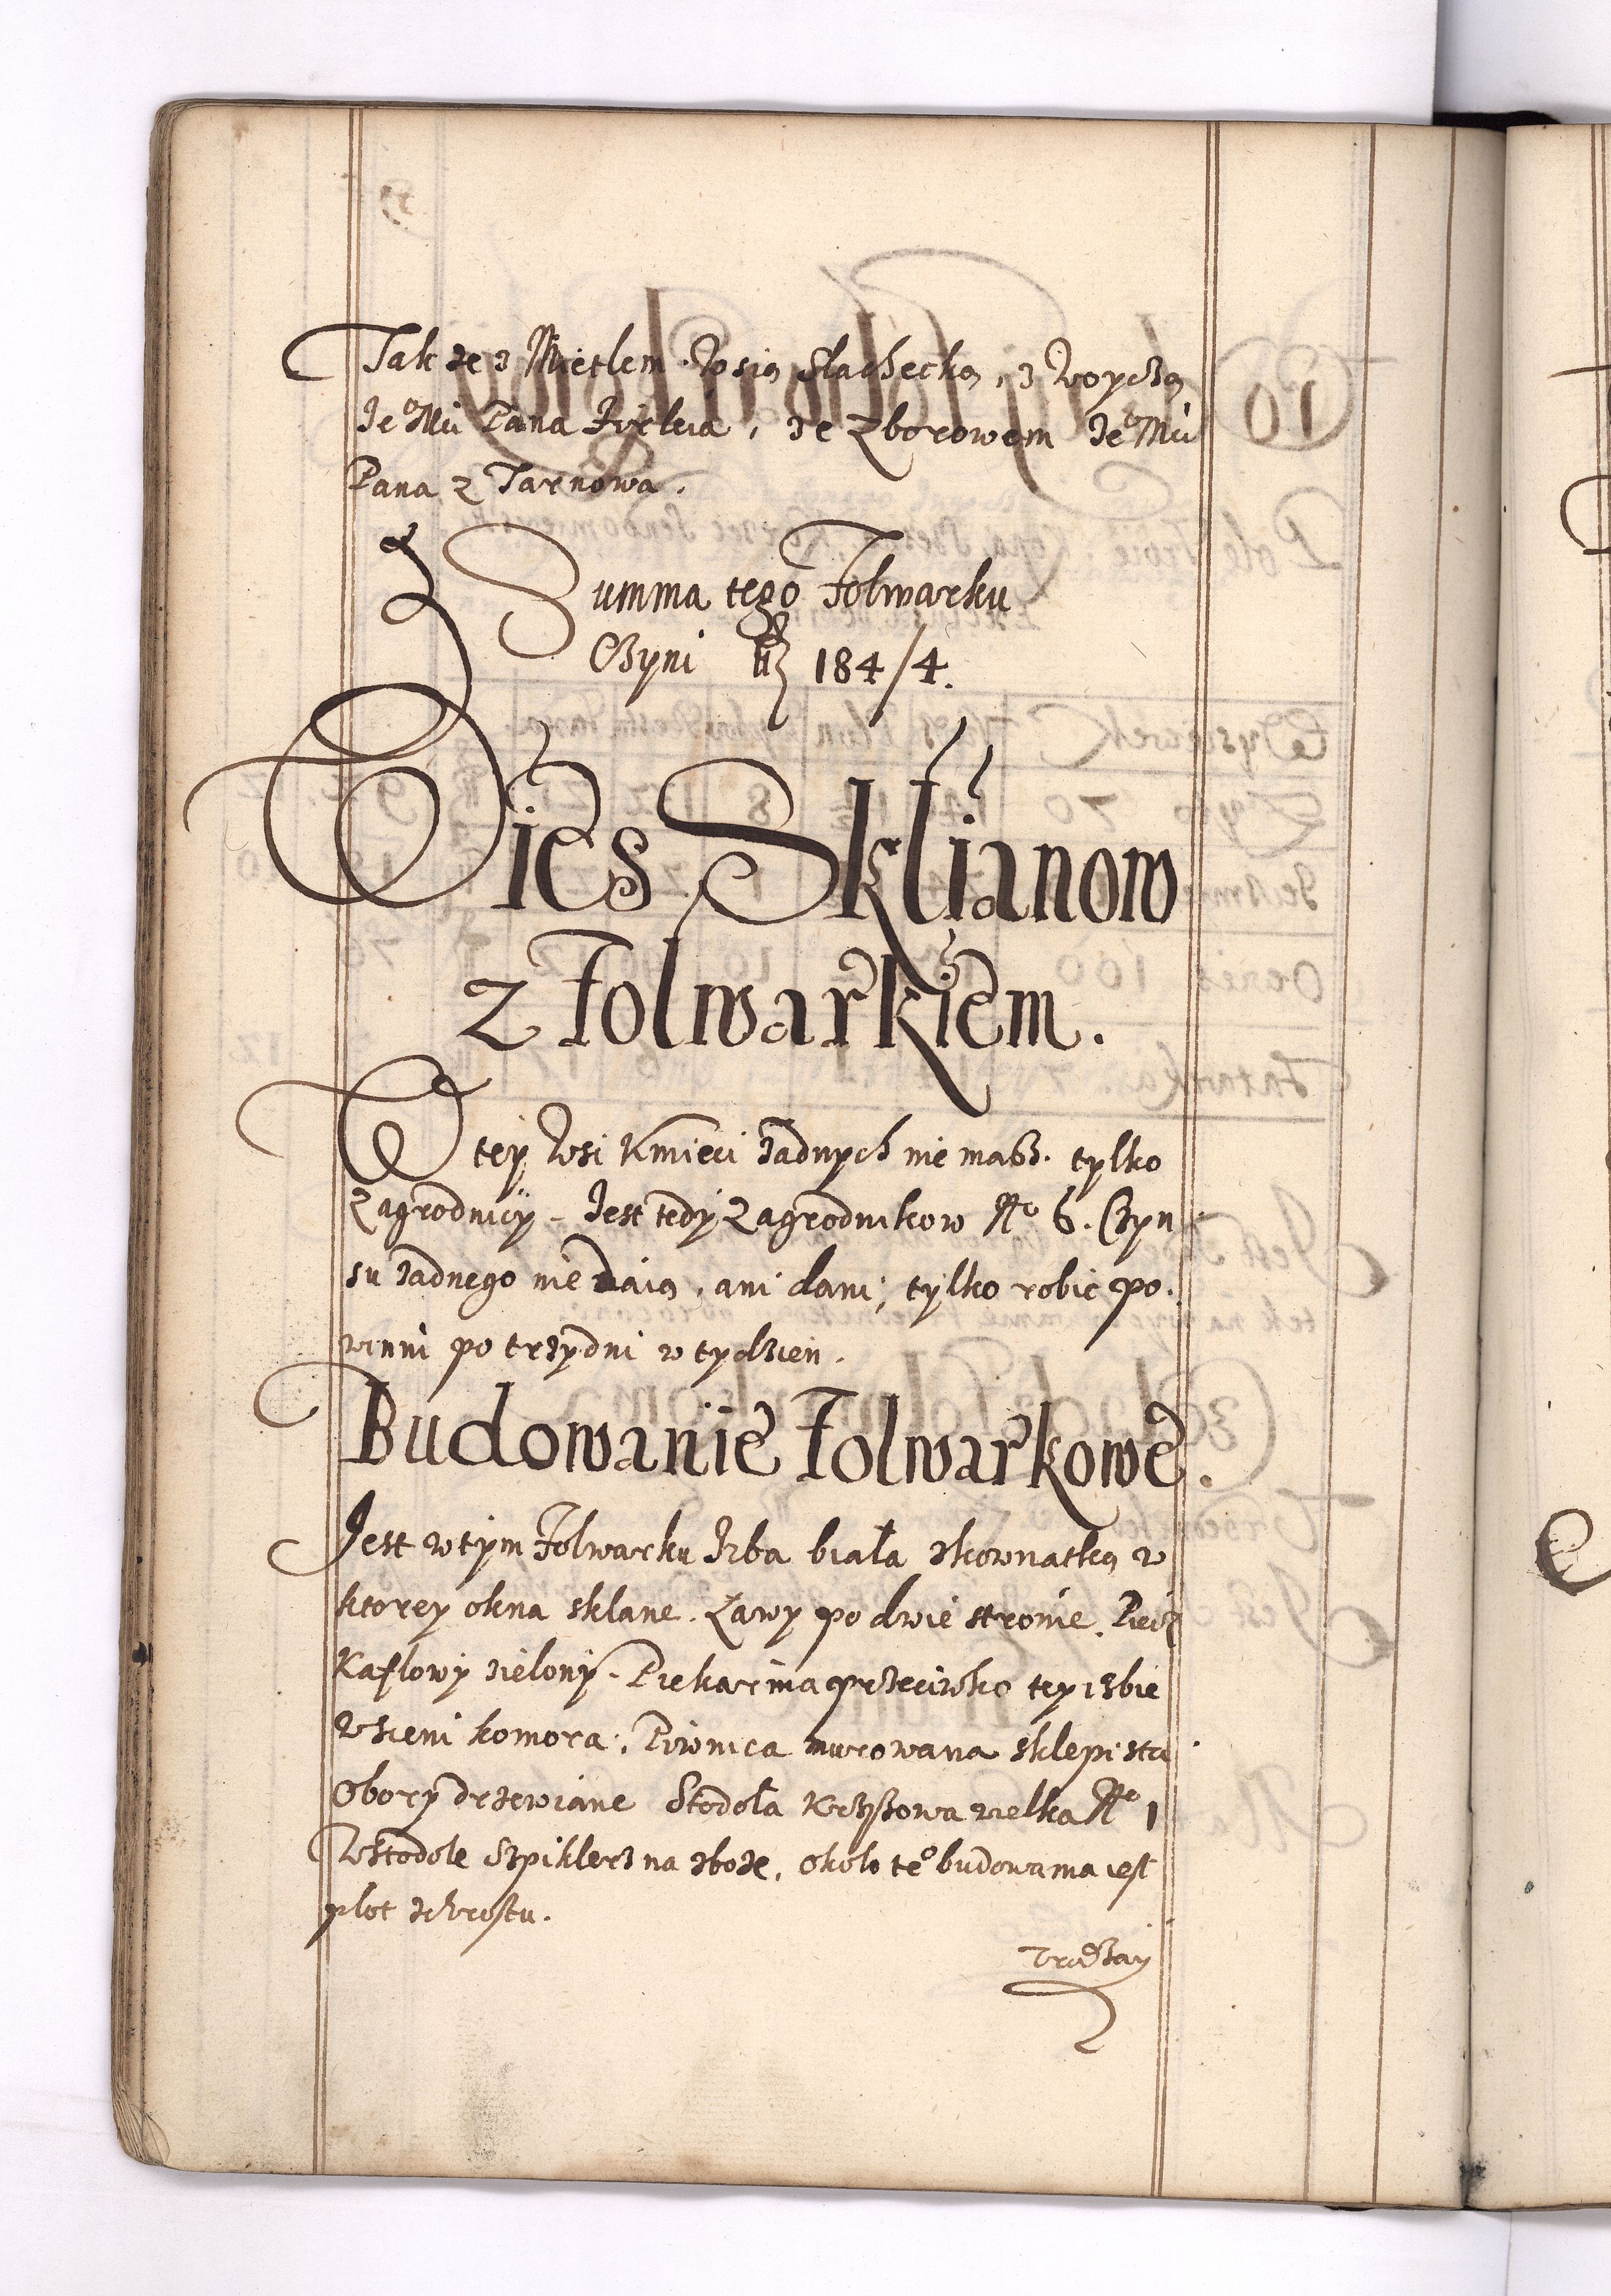 Tak ze z Mietlem Wsią Slachecką, z Woyczą
Je° Mći Pana Firleia, ze Zborowem Je° Mći
Pana z Tarnowa.
Summa tego Folwarku
Czyni 184/4.
Wies Sklianow
z Folwarkiem.
W tey Wsi Kmieci żadnych nie masz. tylko
Zagrodnicy. Jest tedy Zagrodnikow N° 6. Czyn
su żadnego nie daią, ani dani, tylko robic po.
winni po trzy dni w tydzien.
Budowanie Folwarkowe.
Jest w tym Folwarku Izba biała z kownatką w
ktorey okna sklane. Ławy po dwie stronie. Piecz
Kaflowy zielony. Piekarnia przeciwko tey izbie
W sieni komora. Piwnica murowana sklepista
Obory drzewiane Stodoła Krzyżowa wielka N° 1
W stodole Szpiklerz na zboże. Około te° budowania iest
plot ze Chrostu.